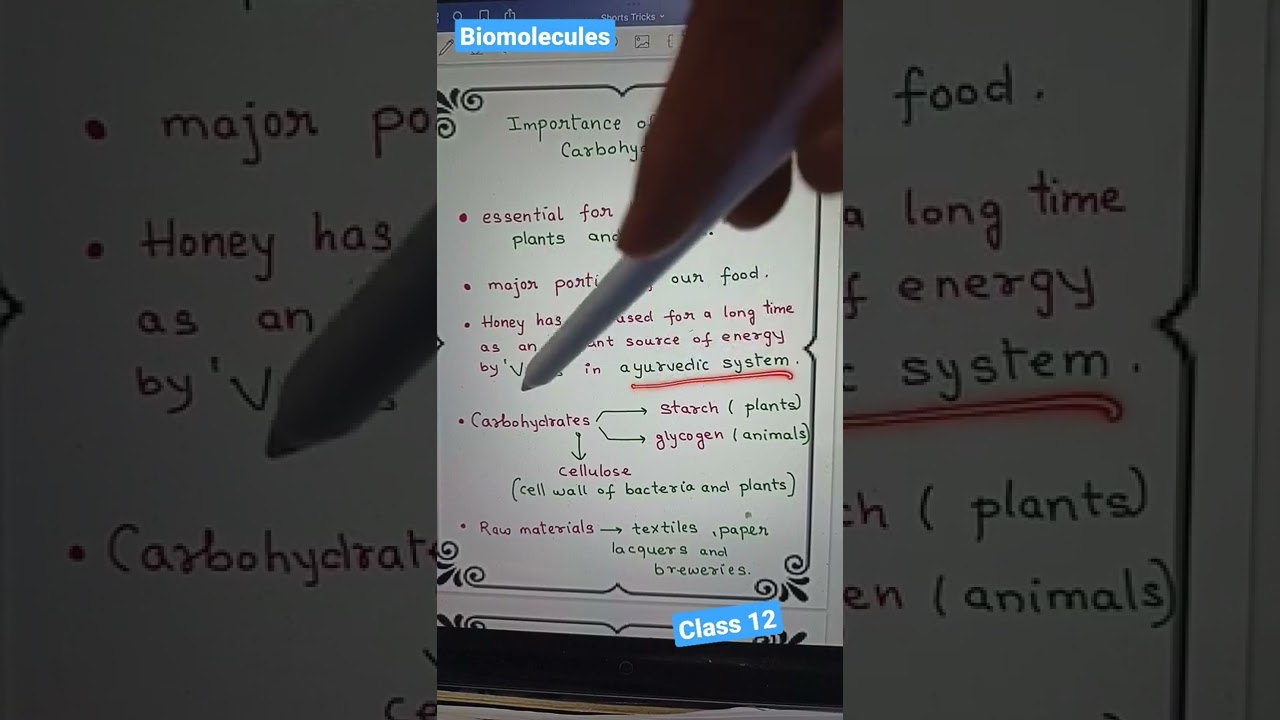 Shorts Tricks
Biomolecules
Importance o
Carbohy
essential for
plants and
major porti our food.
Honey has used for a long time
as an source of energy
by 'V in ayurvedic system.
Carbohydrates → starch (plants)
→ glycogen (animals)
cellulose
(cell wall of bacteria and plants)
Raw materials → textiles, paper
lacquers and
breweries.
Class 12
major po
Honey has
as an
by 'V
Carbohydrate
ce
food.
a long time
f energy
system.
ch (plants)
en (animals)